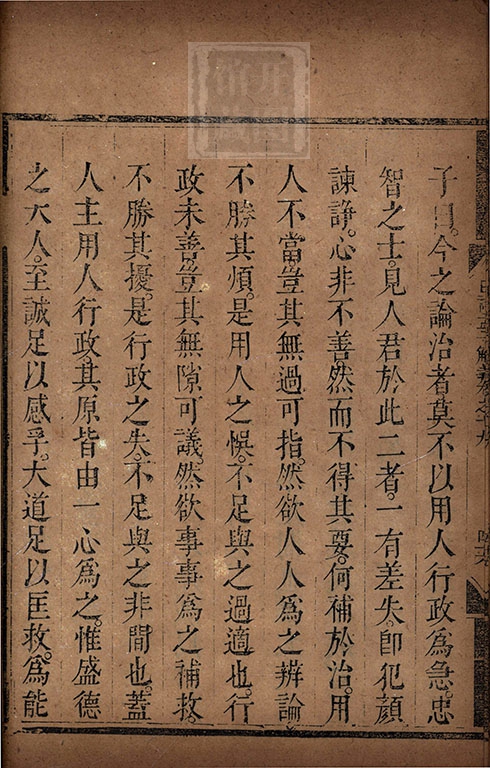 子曰。今之論治者。莫不以用人行政為急。忠
智之士。見人君於此二者。一有差失。卽犯顏
諫諍。心非不善。然而不得其要。何補於治。用
人不當。豈其無過可指。然欲人人為之辨論。
不勝其煩。是用人之悞。不足與之過適也。行
政未善。豈其無隙可議。然欲事事為之補救。
不勝其擾。是行政之失。不足與之非間也。蓋
人主用人行政。其原皆由一心為之。惟盛德
之大人。至誠足以感孚。大道足以匡救。為能